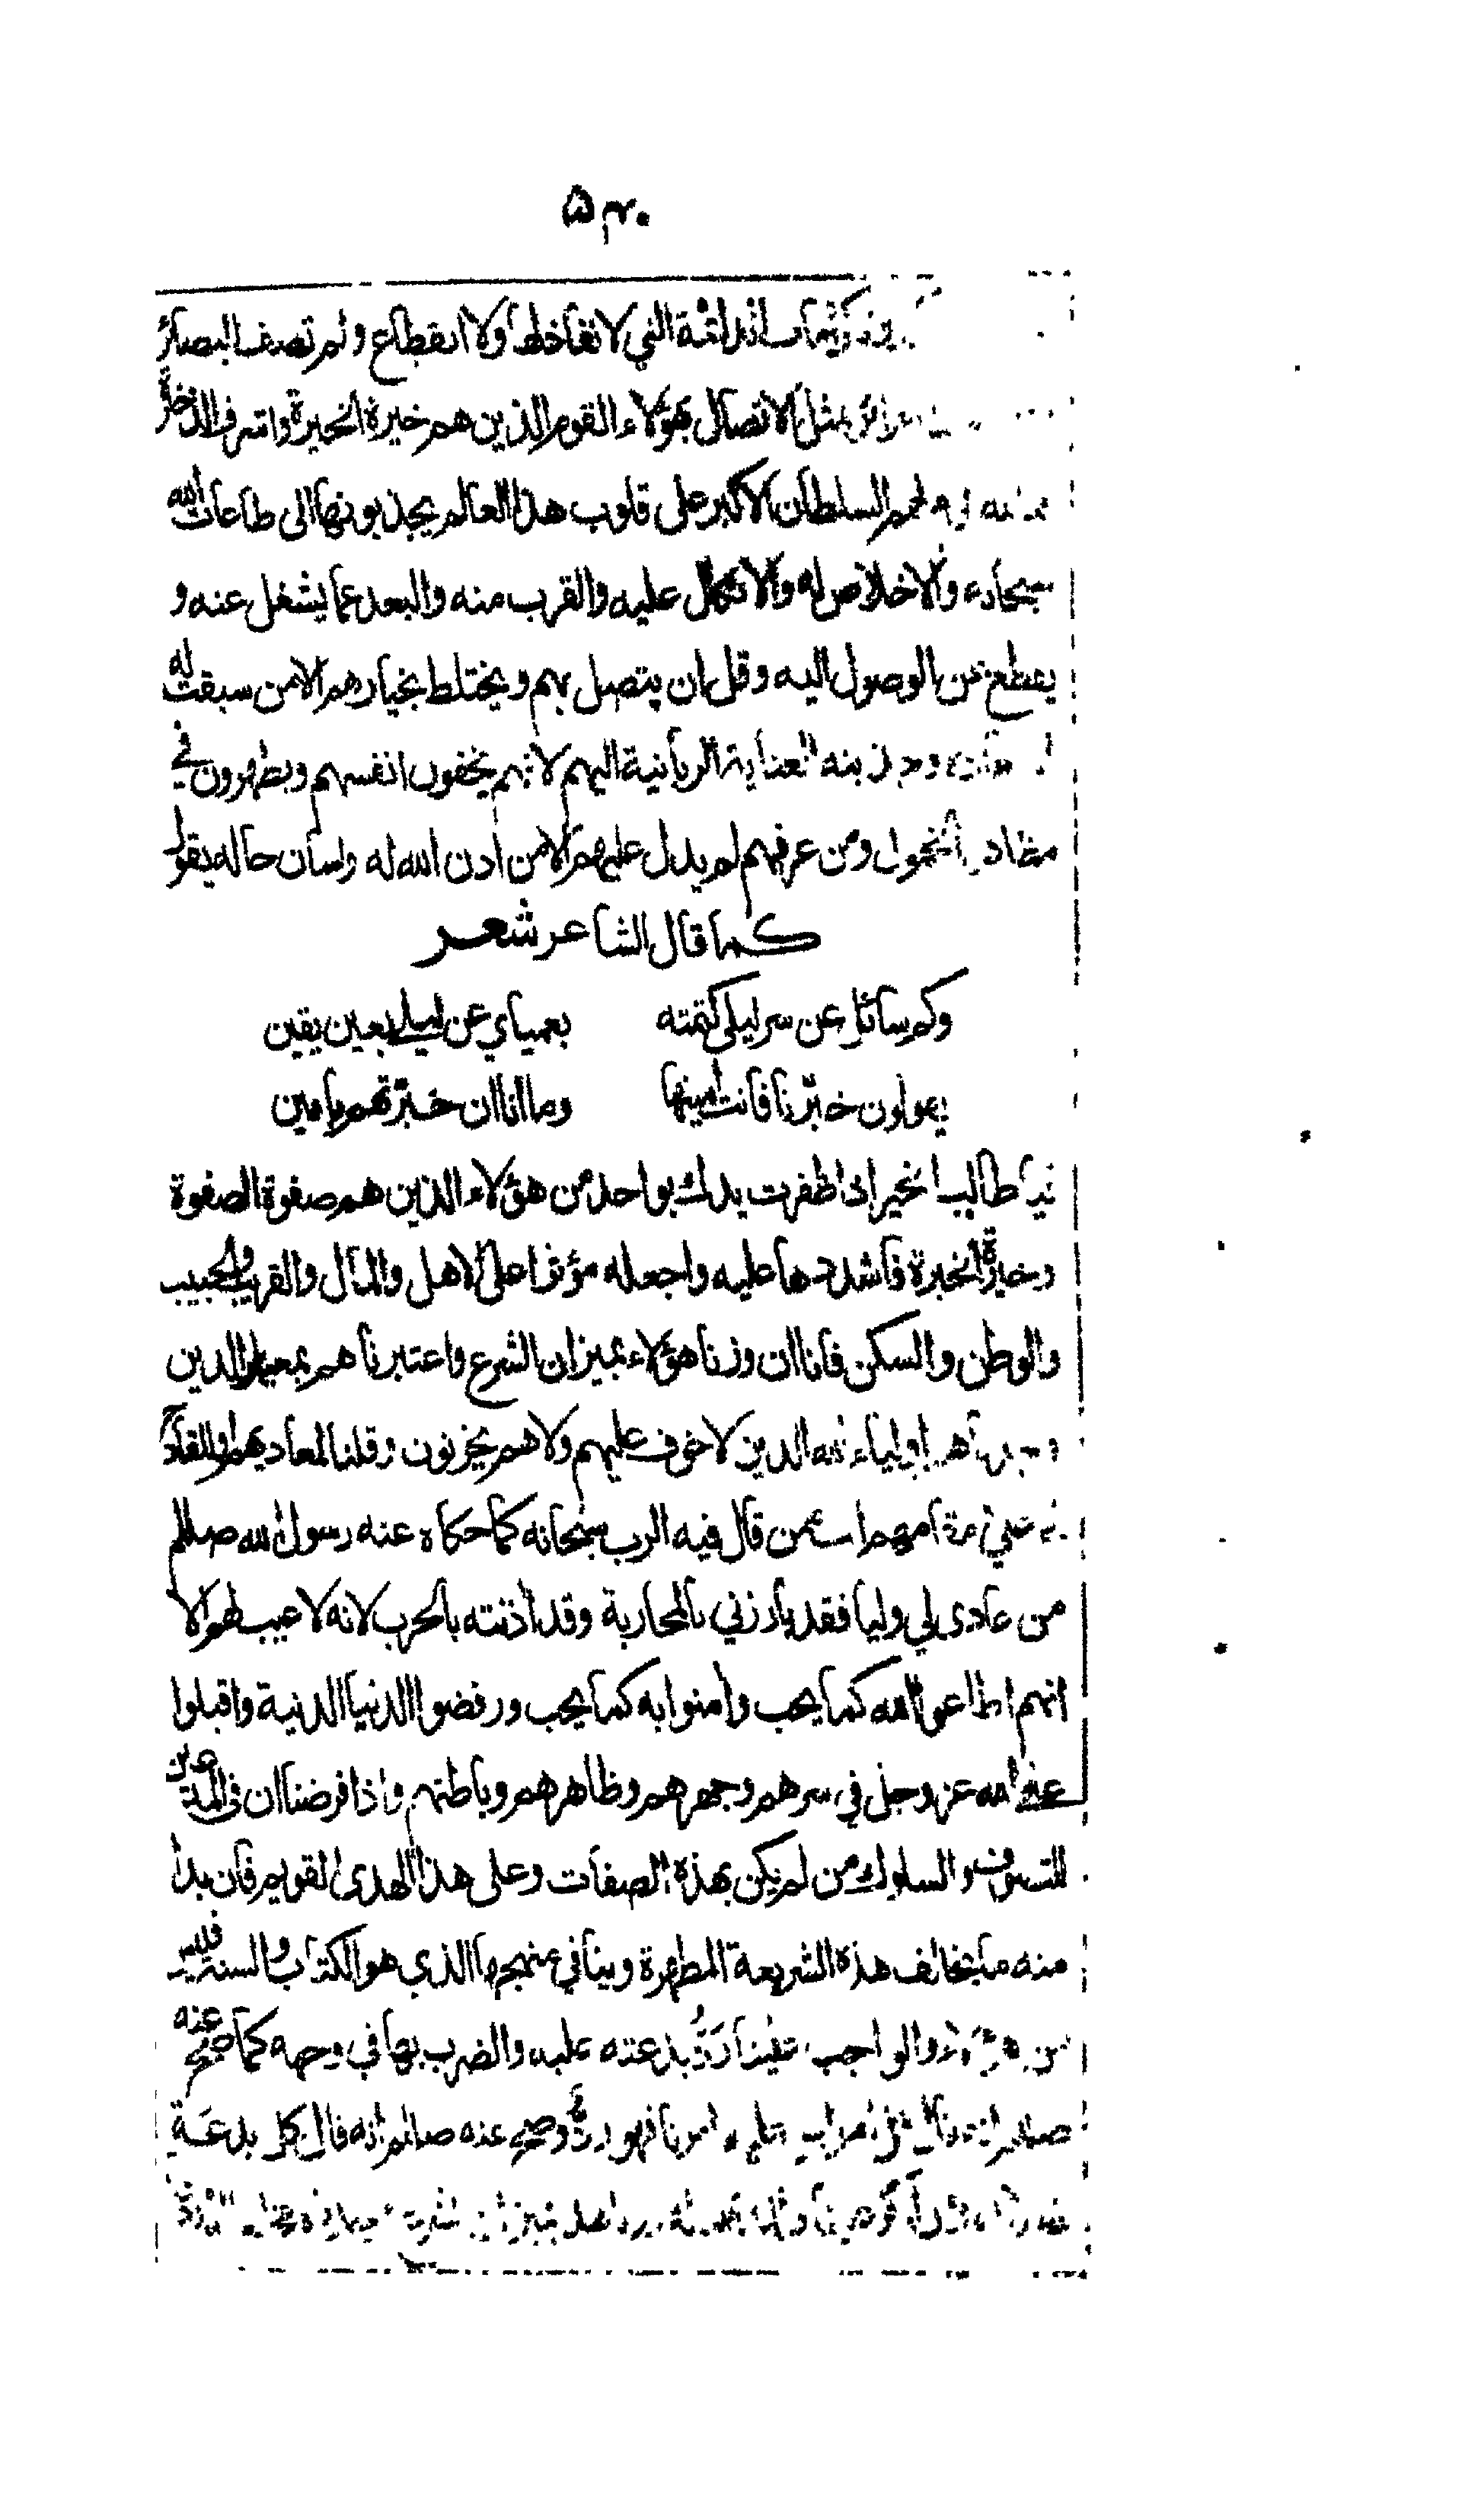 ۵۳۰
الدائمة التي لا تفاخلها ولا انقطاع ولم تصف البصائر
بمثل الاتصال بهؤلاء القوم الذين هم خيرة الخيرة واشرف الذخائر
لهم السلطان الاكبر على قلوب هذا العالم يجذبونها الى طاعات الله
سبحانه والاخلاص له والاتكال عليه والقرب منه والبعد عما يشغل عنه و
يقطع عن الوصول اليه وقل ان يتصل بهم ويختلط بخيارهم الا من سبقت له
وجذبته العناية الربانية اليهم لانهم يخفون انفسهم ويظهرون في
مظاهر الخمول ومن عرفهم لم يدل عليهم الا من اذن الله له ولسان حاله يقول
كما قال الشاعر شعر
وكم سائل عن سر ليلى كتمته بعمياي عن ليلى بعين يقين
يقولون خبّرنا فانت امينها وما انا ان خبّرتهم بامين
فيا طالب الخير اذا ظفرت يدك بواحد من هؤلاء الذين هم صفوة الصفوة
وخيرة الخيرة فاشددها عليه واجعله مؤثرا على الاهل والمال والقريب والحبيب
والوطن والسكن فانا ان وزنا هؤلاء بميزان الشرع واعتبرناهم بمعيار الدين
وجدناهم اولياء الله الذين لا خوف عليهم ولا هم يحزنون وقلنا لمعاديهم او للقادح
في علي مقامهم انت ممن قال فيه الرب سبحانه كما حكاه عنه رسول الله صللم
من عادى لي وليا فقد بارزني بالمحاربة وقد اذنته بالحرب لانه لا عيب لهم الا
انهم اطاعوا الله كما يحب وامنوا به كما يحب ورفضوا الدنيا الدنية واقبلوا
على الله عز وجل في سرهم وجهرهم وظاهرهم وباطنهم واذا فرضنا ان في المدعين
للتصوف والسلوك من لم يكن بهذه الصفات وعلى هذا الهدى القويم فان بدا
منه ما يخالف هذه الشريعة المطهرة وينافي منهجها الذي هو الكتاب والسنة فليس
من هؤلاء والواجب علينا رَدُّ بدعته عليه والضرب بها في وجهه كما صح عنه
صللم انه قال كل امر ليس عليه امرنا فهو ردٌّ وصح عنه صللم انه قال كل بدعة
ضلالة